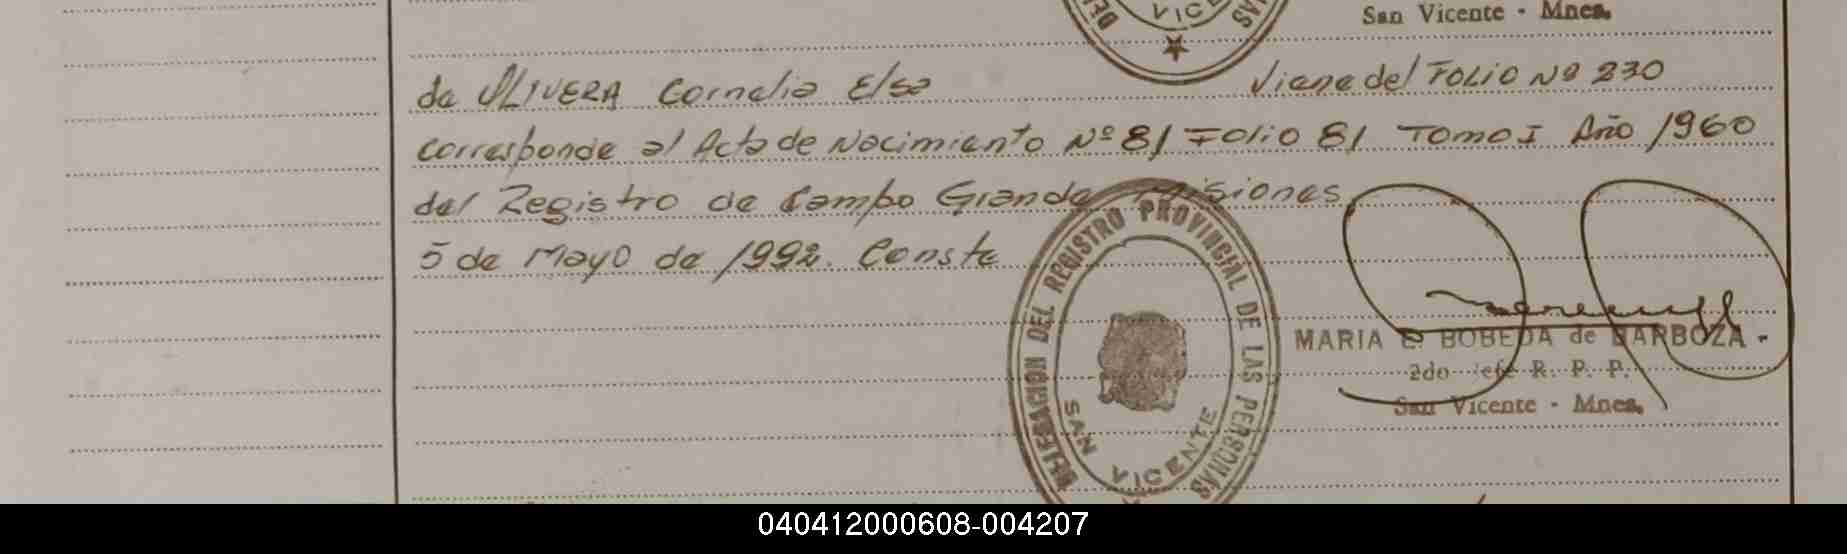 San Vicente - Mnes.
de OLIVERA Cornelia Elsa Viene del FOLIO Nº 230
corresponde al Acta de Nacimiento Nº 81 Folio 81 Tomo I Año 1960
del Registro de Campo Grande Misiones
5 de Mayo de 1992. Conste
DEL REGISTRO PROVINCIAL DE LAS PERSONAS
SAN VICENTE
MARIA E. BOBEDA de BARBOZA -
2do Jefe R. P. P.
San Vicente - Mnes.
040412000608-004207